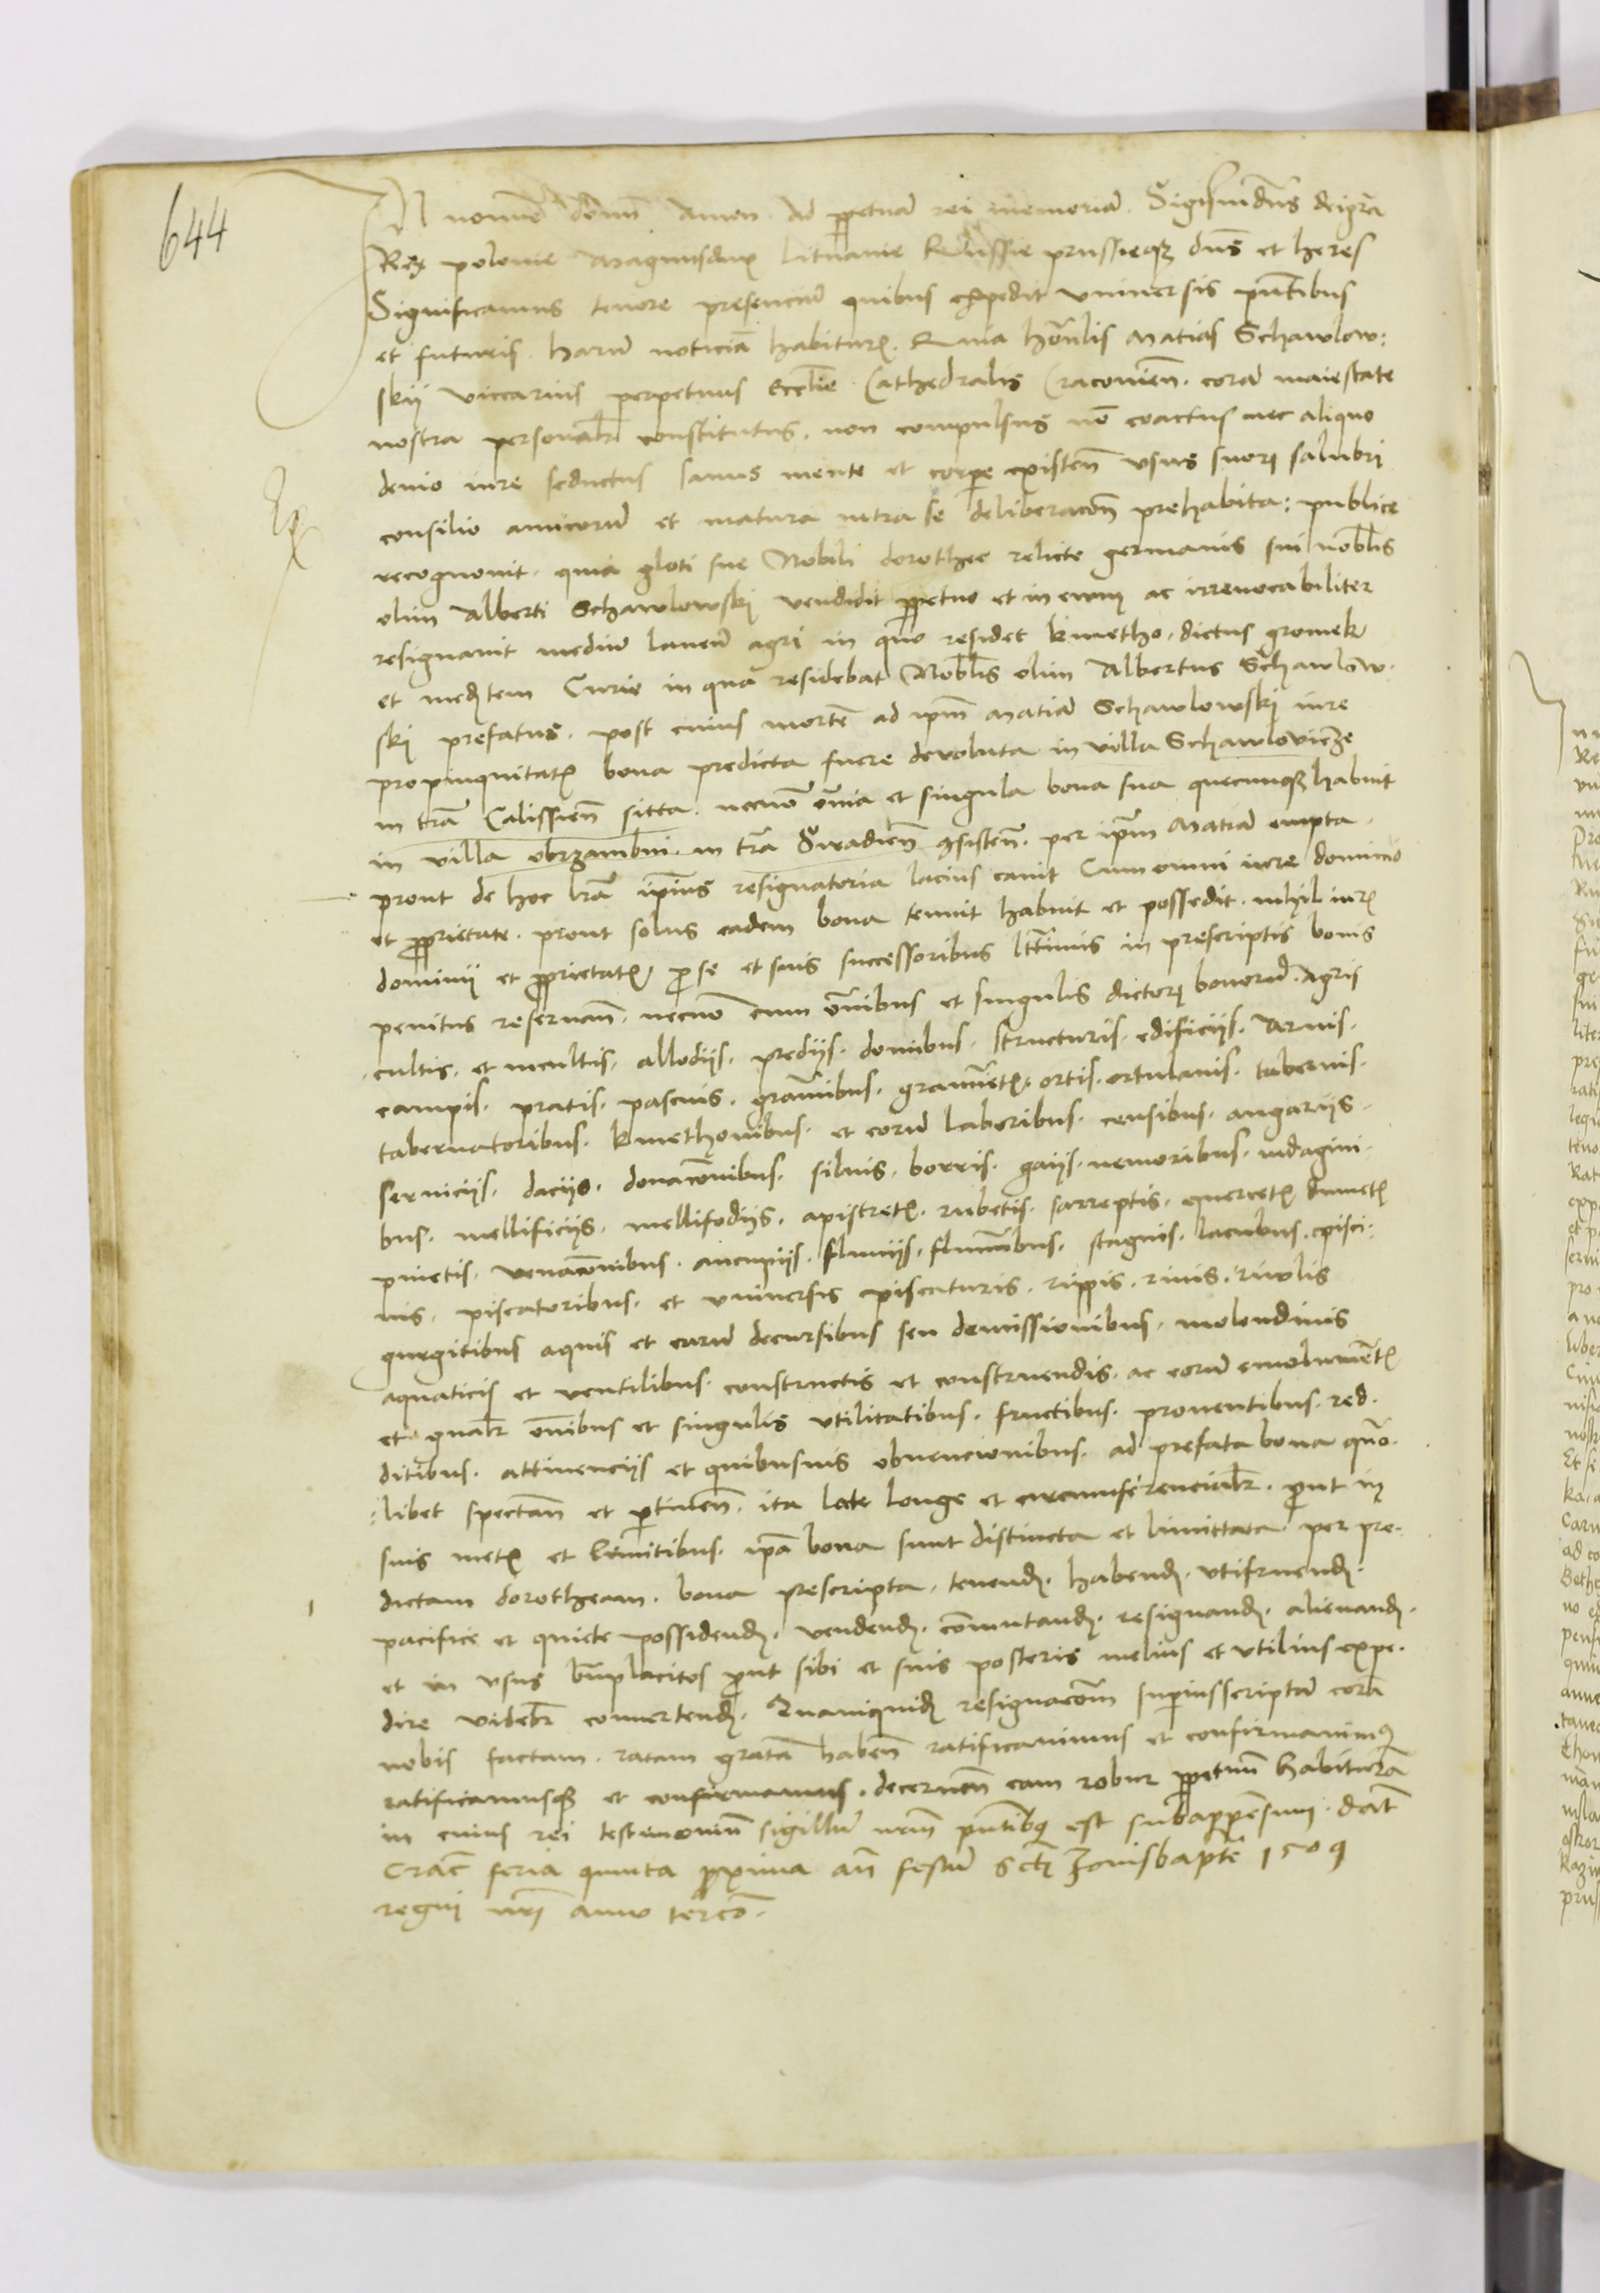 644
In nomīe domī Amen Ad ꝑpetuā rei memoriā Sigismūdus dei grā
Rex polonie Magnusdux Lituanie Russie prussieqꝫ dn̄s et heres
Significamus tenore presenciū quibus expedit vniuersis pn̄tibus
et futuris harū noticiā habiturꝭ Quia honˡis Matias Schawlow:
skij viccarius perpetuus Eccl̄ie Cathedralis Cracouien̄. corā maiestate
nostra personal̄r constitutus, non compulsus nō coactus nec aliquo
deuio iure seductus sanus mente et corꝑe existen̄ vsus suorꝝ salubri
consilio amicorū et matura intra se deliberacōn prehabita: publice
recognouit. quia gloti sue Nobili dorothee relicte germanis sui nobl̄is
olim Alberti Schawlowski vendidit ꝑpetuo et in ewm ac irreuocabiliter
resignauit mediū laneū agri in quo residet kmetho dictus gromek
et medꝫtem Curie in qua residebat Nobl̄is olim Albertus Schawlow-
ski prefatus. post cuius mortē ad ipm̄ Matiā Schawlowski iure
propinquitatꝭ bona predicta fuere deuoluta in villa Schawlovicze
in trā Calissien̄ sitta. necnō om̄ia et singula bona sua quecumqꝫ habuit
in villa obrzambini in trā Siradien̄ ꝯsisten̄. per ipm̄ Matiā empta
prout de hoc lrā ip̄ius resignatoria lacius canit Cum omni iure dominio
et ꝓprietate. prout solus eadem bona tenuit habuit et possedit. nihil iurꝭ
dominij et ꝓprietatꝭ ꝓ se et suis successoribus lttimis in prescriptis bonis
penitus reseruan̄. necnō cum om̄ibus et singulis dictorꝝ bonorū. Agris
cultis. et incultis. allodijs. predijs. domibus. structuris. edificijs. Aruis.
campis. pratis. pascuis. gram̄ibus. gramīetꝭ. ortis. ortulanis. tabernis.
tabernatoribus. kmethonibus. et eorū laboribus. censibus. angarijs.
seruicijs. dacijs. donacōnibus. siluis. borris. gaijs. nemoribus. indagini-
bus. mellificijs. mellifodijs. apistretꝭ. rubetis. sarreptis. quercetꝭ dumetꝭ
pinetis. venacōnibus. aucupijs. fluuijs. flumībus. stagnis. lacubus. episci:
nis. piscatoribus. et vniuersis piscaturis. rippis. riuis. riuolis
gurgitibus aquis et earū decursibus seu demissionibus. molendinis
aquaticis et ventilibus. constructis et construendis. ac eorū emolumētꝭ
et gnal̄r om̄ibus et singulis vtilitatibus. fructibus. prouentibus. red-
ditibus. attinencijs et quibusuis obuencionibus. ad prefata bona quō-
libet spectan̄ et ꝑtinen̄. ita late longe et circumferencial̄r. ꝓut in
suis metꝭ et limitibus. ip̄a bona sunt distincta et limittata per pre-
dictam dorotheam. bona prescripta. tenendꝫ. habendꝫ. vtifruendꝫ.
pacifice et quiete possidendꝫ. vendendꝫ. cōmutandꝫ. resignandꝫ. alienandꝫ.
et in vsus bn̄placitos ꝓut sibi et suis posteris melius et vtilius expe-
dire videbr̄ conuertendꝫ. Quamquidꝫ resignacōm suꝑiusscriptā corā
nobis factam. ratam gratā haben̄ ratificauimus et confirmauimꝰ
ratificamusqꝫ et confirmamus. decernen̄ eam robur ꝑpetuū habiturā
in cuius rei testimoniū sigillū nrm̄ pn̄tibꝰ est subappēsum. Dat̄
Crac̄ feria quinta ꝓxima an̄ festū Sctꝫ Iohīsbapte 1509
regni nrī anno tercō.